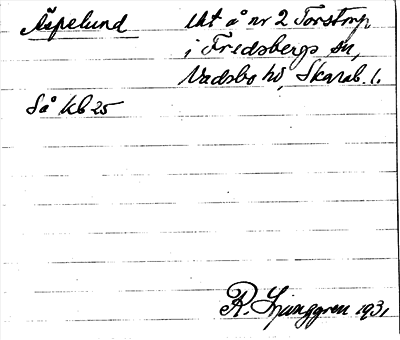 Äspelund Uht å nr 2 Torstorp
i Fredsbergs sn,
Vadsbo hd, Skarab. l.
Så kb 25
R. Ljunggren 1931